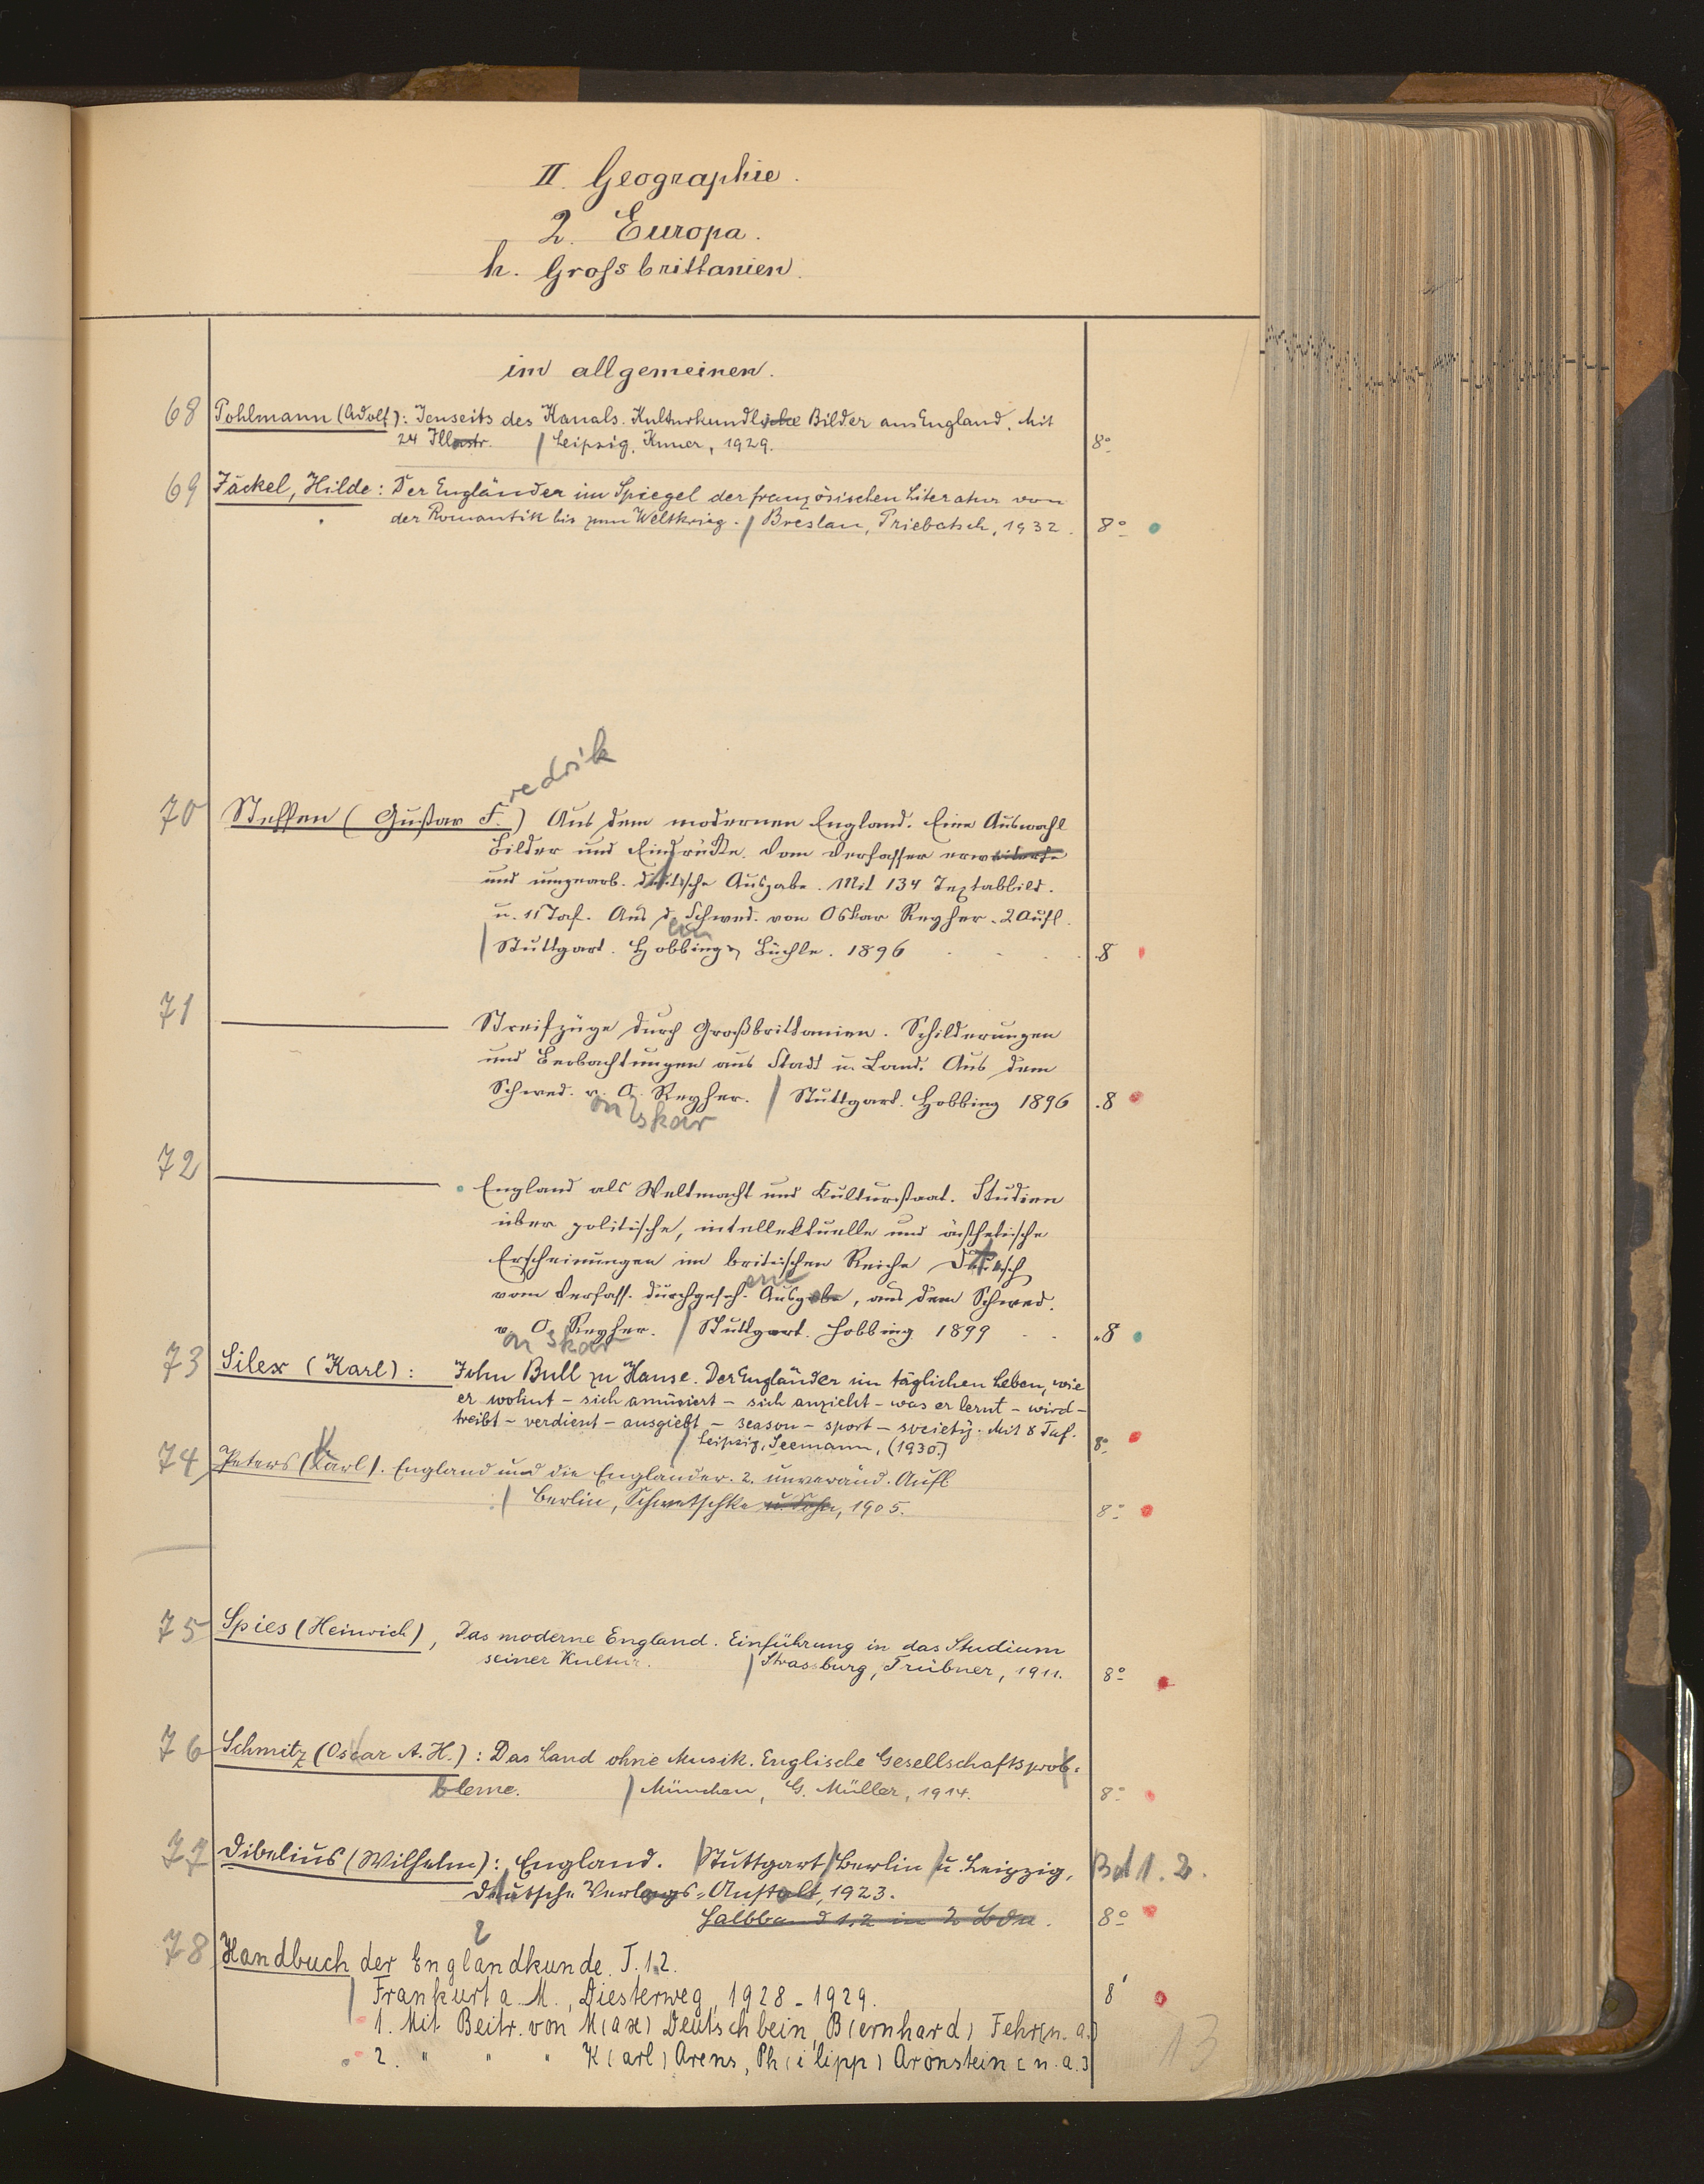 II. Geographie.
2. Europa.
h. Grossbrittanien.
im allgemeinen.
68 Pohlmann (Adolf): Jenseits des Kanals. Kulturkundliche Bilder aus England. Mit
24 Illustr. / Leipzig, 1929. 8°
69 Jäckel, Hilde: Der Engländer im Spiegel der französischen Literatur von
der Romantik bis zum Weltkrieg. / Breslau, Priebatsch, 1932. 8°
redrik
70 Steffen (Gustav F.) Aus dem modernen England. Eine Auswahl
Bilder und Eindrücke. Vom Verfasser erweiterte
und umgearb. deutsche Ausgabe. Mit 134 Textabbild.
u. 11 Taf. Aus d. Schwed. von Oskar Reyher. 2 Aufl.
/ Stuttgart. Hobbing & Büchle. 1896 . . . . 8
71 ——— Streifzüge durch Großbrittanien. Schilderungen
und Beobachtungen aus Stadt u. Land. Aus dem
Schwed. v. O. Reyher. / Stuttgart. Hobbing 1896 . 8
on skar
72 ——— England als Weltmacht und Kulturstaat. Studien
über politische, intellektuelle und ästhetische
Erscheinungen im britischen Reiche Deutsch
vom Verfass. durchgeseh. Ausgabe, aus dem Schwed.
v. O. Reyher. / Stuttgart. Hobbing 1899 . . . 8
on skar
73 Silex (Karl): John Bull zu Hause. Der Engländer im täglichen Leben, wie
er wohnt – sich amüsiert – sich anzieht – was er lernt – wird –
treibt – verdient – ausgiebt – season – sport – society. Mit 8 Taf.
/ Leipzig, Seemann, (1930.) 8°
74 Peters (Karl). England und die Engländer. 2. unveränd. Aufl
/ Berlin, Schwetschke u. Sohn, 1905. 8°
75 Spies (Heinrich), Das moderne England. Einführung in das Studium
seiner Kultur. / Strassburg, Trübner, 1911. 8°
76 Schmitz (Oscar A. H.): Das Land ohne Musik. Englische Gesellschaftsprob-
bleme. / München, G. Müller, 1914. 8°
77 Dibelius (Wilhelm): England. / Stuttgart / Berlin / u. Leipzig, Bd 1. 2.
Deutsche Verlags-Anstalt, 1923.
Halbband 1.2 in 2 Bdn. 8°
78 Handbuch der Englandkunde. T. 1.2.
/ Frankfurt a. M., Diesterweg, 1928-1929. 8'
1. Mit Beitr. von M(ax) Deutschbein, B(ernhard) Fehr [u. a.]
2. " " " K(arl) Arens, Ph(ilipp) Aronstein [u. a.]
13